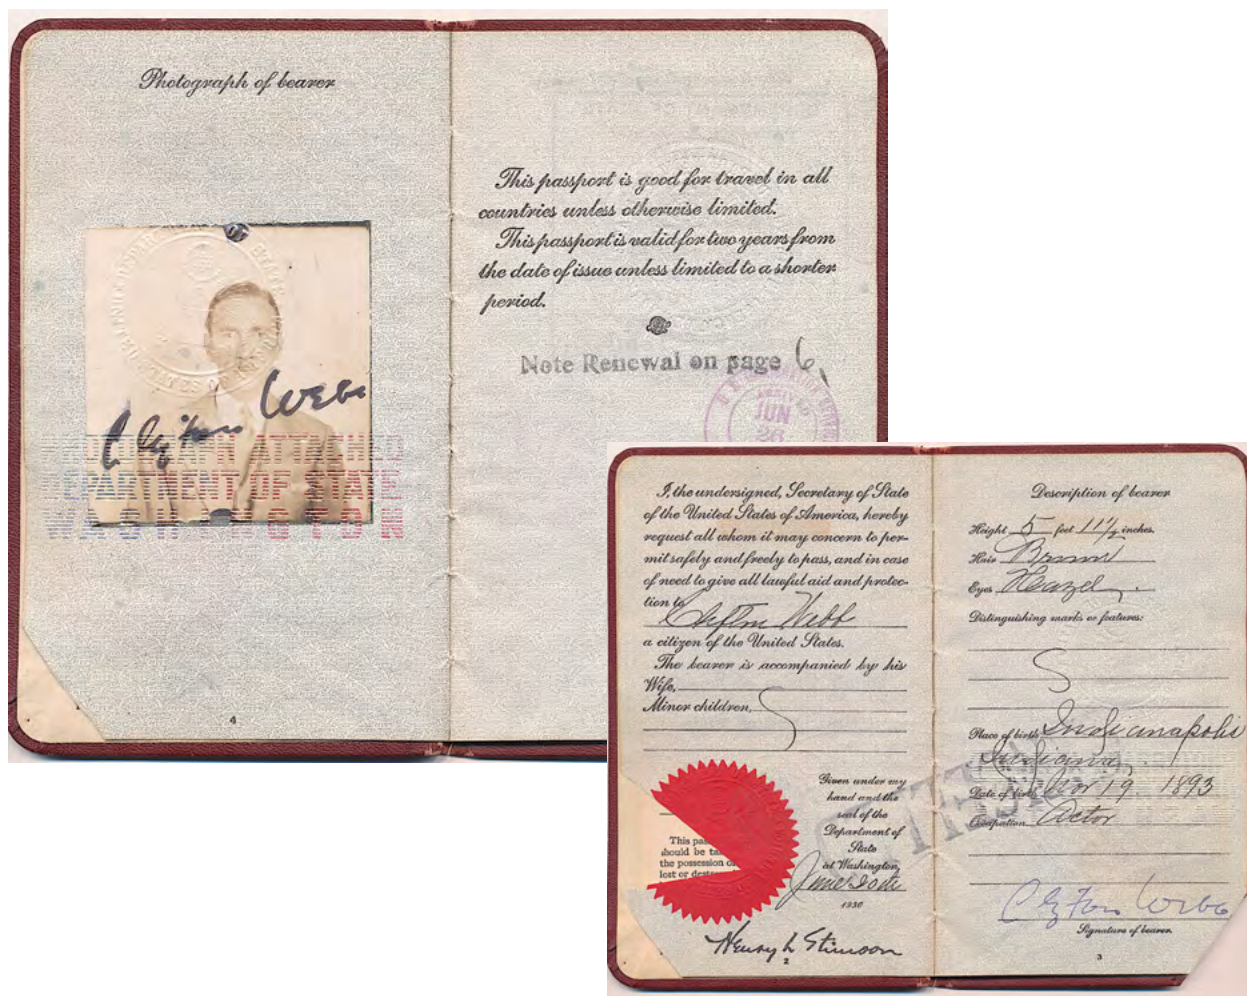 Photograph of bearer
Clifton Webb
PHOTOGRAPH ATTACHED
DEPARTMENT OF STATE
WASHINGTON
4
This passport is good for travel in all
countries unless otherwise limited.
This passport is valid for two years from
the date of issue unless limited to a shorter
period.
Note Renewal on page 6,
JUN
26
I, the undersigned, Secretary of State
of the United States of America, hereby
request all whom it may concern to per-
mit safely and freely to pass, and in case
of need to give all lawful aid and protec-
tion to
Clifton Webb
a citizen of the United States.
The bearer is accompanied by his
Wife,
Minor children,
Given under my
hand and the
seal of the
Department of
State
at Washington,
1930
This pas
should be ta
the possession o
lost or destr
Henry L Stimson
2
Description of bearer
Height 5 feet 11 1/2 inches.
Hair Brown
Eyes Hazel
Distinguishing marks or features:
Place of birth Indianapolis
Indiana
Date of birth Nov 19. 1893
Occupation Actor
Clifton Webb
Signature of bearer.
3